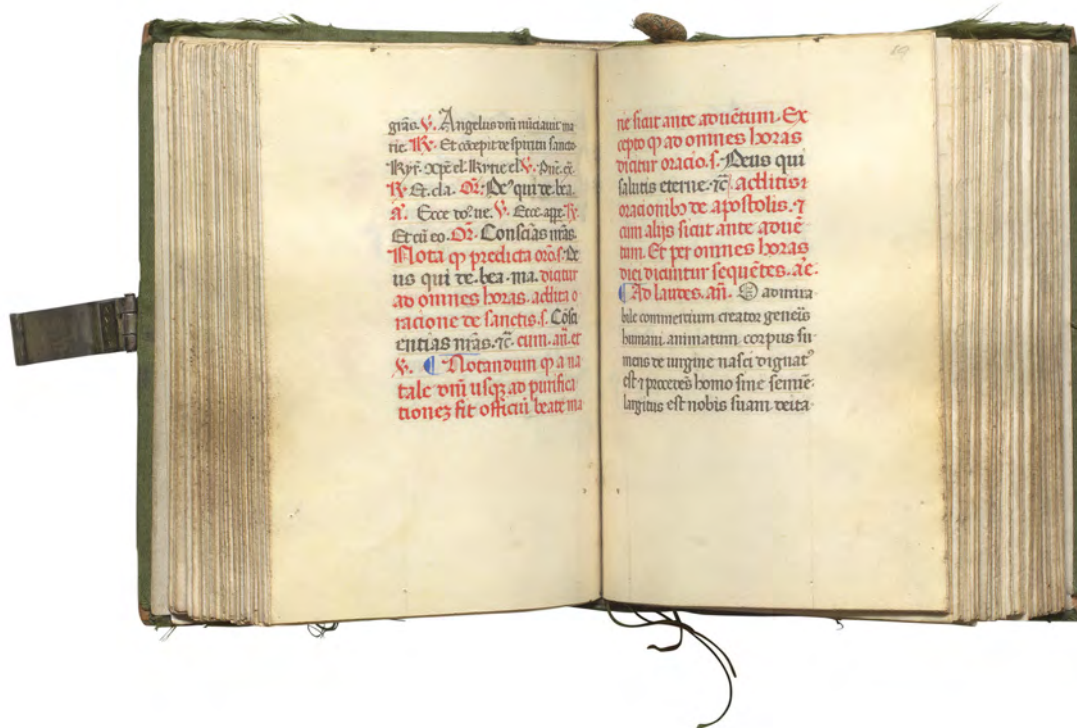 grãs. V. Angelus dñi nũciauit ma
rie. R. Et cõcepit de spiritu sancto
Kyr̃. xp̃e el. Kyrie el. V. Dñe. ex.
R. Et. cla. Or̃. De⁹ qui de. bea.
a. Ecce do. ue. V. Ecce. appe. R.
Et cũ eo. Or̃. Consciãs nr̃as.
Nota ꝙ predicta orõ. s. De
us qui de. bea. ma. dicitur
ad omnes horas. addita o
racione de sanctis. s. Cõsci
entias nr̃as. ⁊c̃. cum. añ. et
V. Notandum ꝙ a na
tale dñi usqꝫ ad purifica
tioneꝫ fit officiũ beate ma
19
rie sicut ante aduẽtum. Ex
cepto ꝙ ad omnes horas
dicitur oracio. s. Deus qui
salutis eterne. ⁊c̃. additis
oracionibꝫ de apostolis. ⁊
cum alijs sicut ante aduẽ
tum. Et per omnes horas
diei dicuntur sequẽtes. añe.
Ad laudes. añ. O admira
bile commercium creator generis
humani. animatum corpus su
mens de uirgine nasci dignat⁹
est ⁊ procedẽs homo sine semĩe.
largitus est nobis suam deita